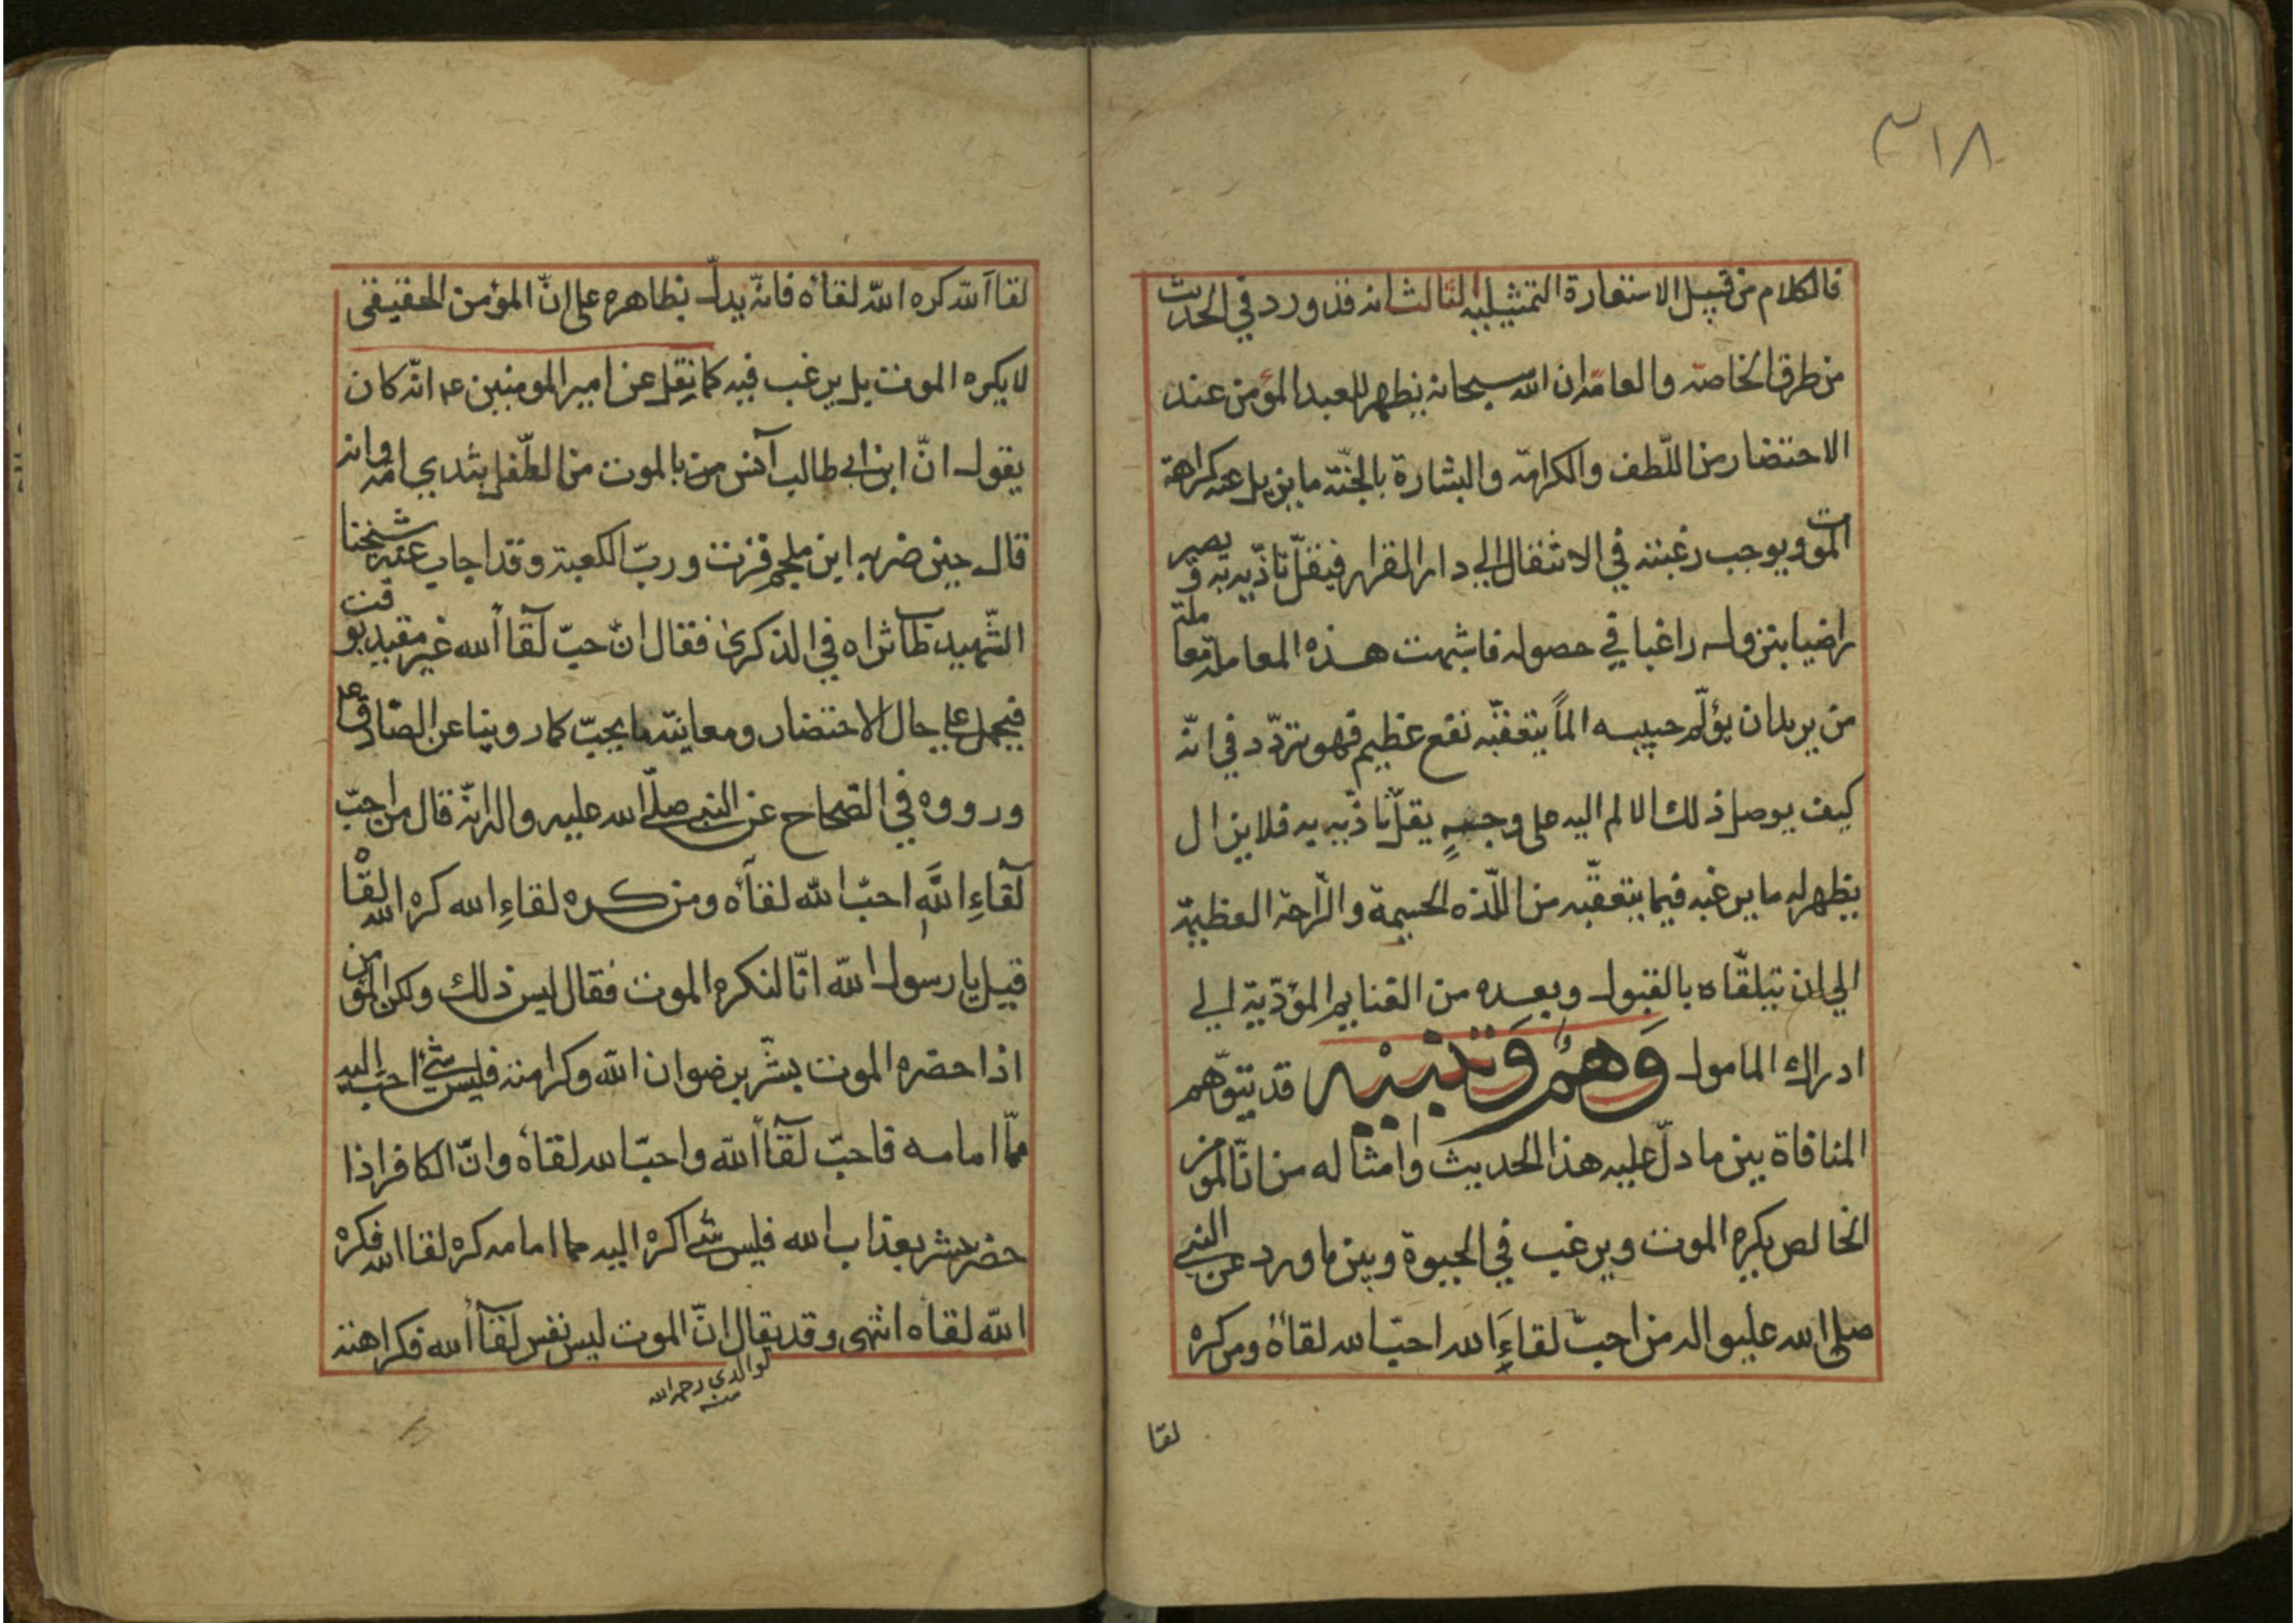 ٣١٨
فالكلام من قبيل الاستعارة التمثيلية الثالث انه قد ورد في الحديث
من طرق الخاصة والعامة ان الله سبحانه يظهر للعبد المؤمن عند
الاحتضار من اللّطف والكرامة والبشارة بالجنّة ما يزيل عنه كراهة
الموت ويوجب رغبته في الانتقال الي دار القرار فيقلّ تاذّيه به ويصير
راضيا بنزوله راغبا في حصوله فاشبهت هذه المعاملة معاملة
من يريد ان يؤلّم حبيبه الماً يتعقبّه نفع عظيم فهو يتردّد في انّه
كيف يوصل ذلك الالم اليه على وجهٍ يقلّ تاذّيه به فلا يزال
يظهر له ما يرغبه فيما يتعقّبه من اللّذه الجسيمة والرّاحة العظيمة
الي ان يتلقّاه بالقبول ويعده من الغنايم المؤدّية الي
ادراك المامول وَهْمٌ وَتَنبيْه قد يتوّهم
المنافاة بين ما دلّ عليه هذا الحديث وامثاله من انّ المؤمن
الخالص يكره الموت ويرغب في الحيوة وبين ما ورد عن النبي
صلى الله عليه واله من احبّ لقاءَ الله احبّ الله لقاءه ومن كره
لقا
لقاآ الله كره الله لقاءه فانّه يدلّ بظاهره على انّ المؤمن الحقيقى
لا يكره الموت بل يرغب فيه كما نقل عن امير المومنين عم انّه كان
يقول انّ ابن ابي طالب آنس من بالموت من الطّفل بثدي امّه وانه
قال حين ضربه ابن ملجم فزت وربّ الكعبة وقد اجاب عنه شيخنا
الشّهيد طاب ثراه في الذكرى فقال انّ حبّ لقآأ الله غير مقيد بوقت
فيحمل علي حال الاحتضار ومعاينة ما يحبّ كما روينا عن الصّادق ع
ورووه في الصّحاح عن النبي صلّى الله عليه واله انّه قال من احبّ
لقآءِ اللَّهِ احبّ الله لقآءه ومن كره لقاءِ الله كره الله لقاه
قيل يا رسول الله انّا لنكره الموت فقال ليس ذلك ولكن المؤمن
اذا حضره الموت بشّر برضوان الله وكرامته فليس شيئ احبّ اليه
ممّا امامه فاحبّ لقآأ الله واحبّ الله لقاءه وانّ الكافر اذا
حضر بشر بعذاب الله فليس شي اكره اليه مما امامه كره لقاا الله فكره
الله لقاءه انتهى وقد يقال انّ الموت ليس نفس لقآأ الله فكراهته
لوالدي رحمه الله
منه